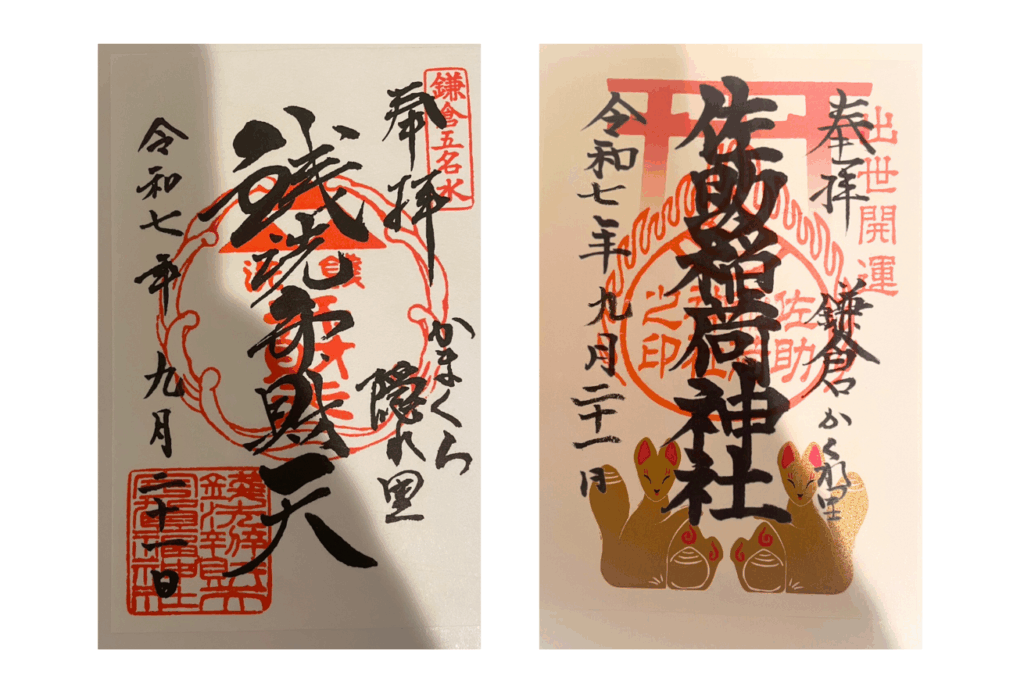 鎌倉五名水
奉拝
かまくら
隠れ里
銭洗弁財天
令和七年九月二十一日
出世開運
奉拝
鎌倉かくれ里
佐助稲荷神社
佐助
之印
令和七年九月二十一日